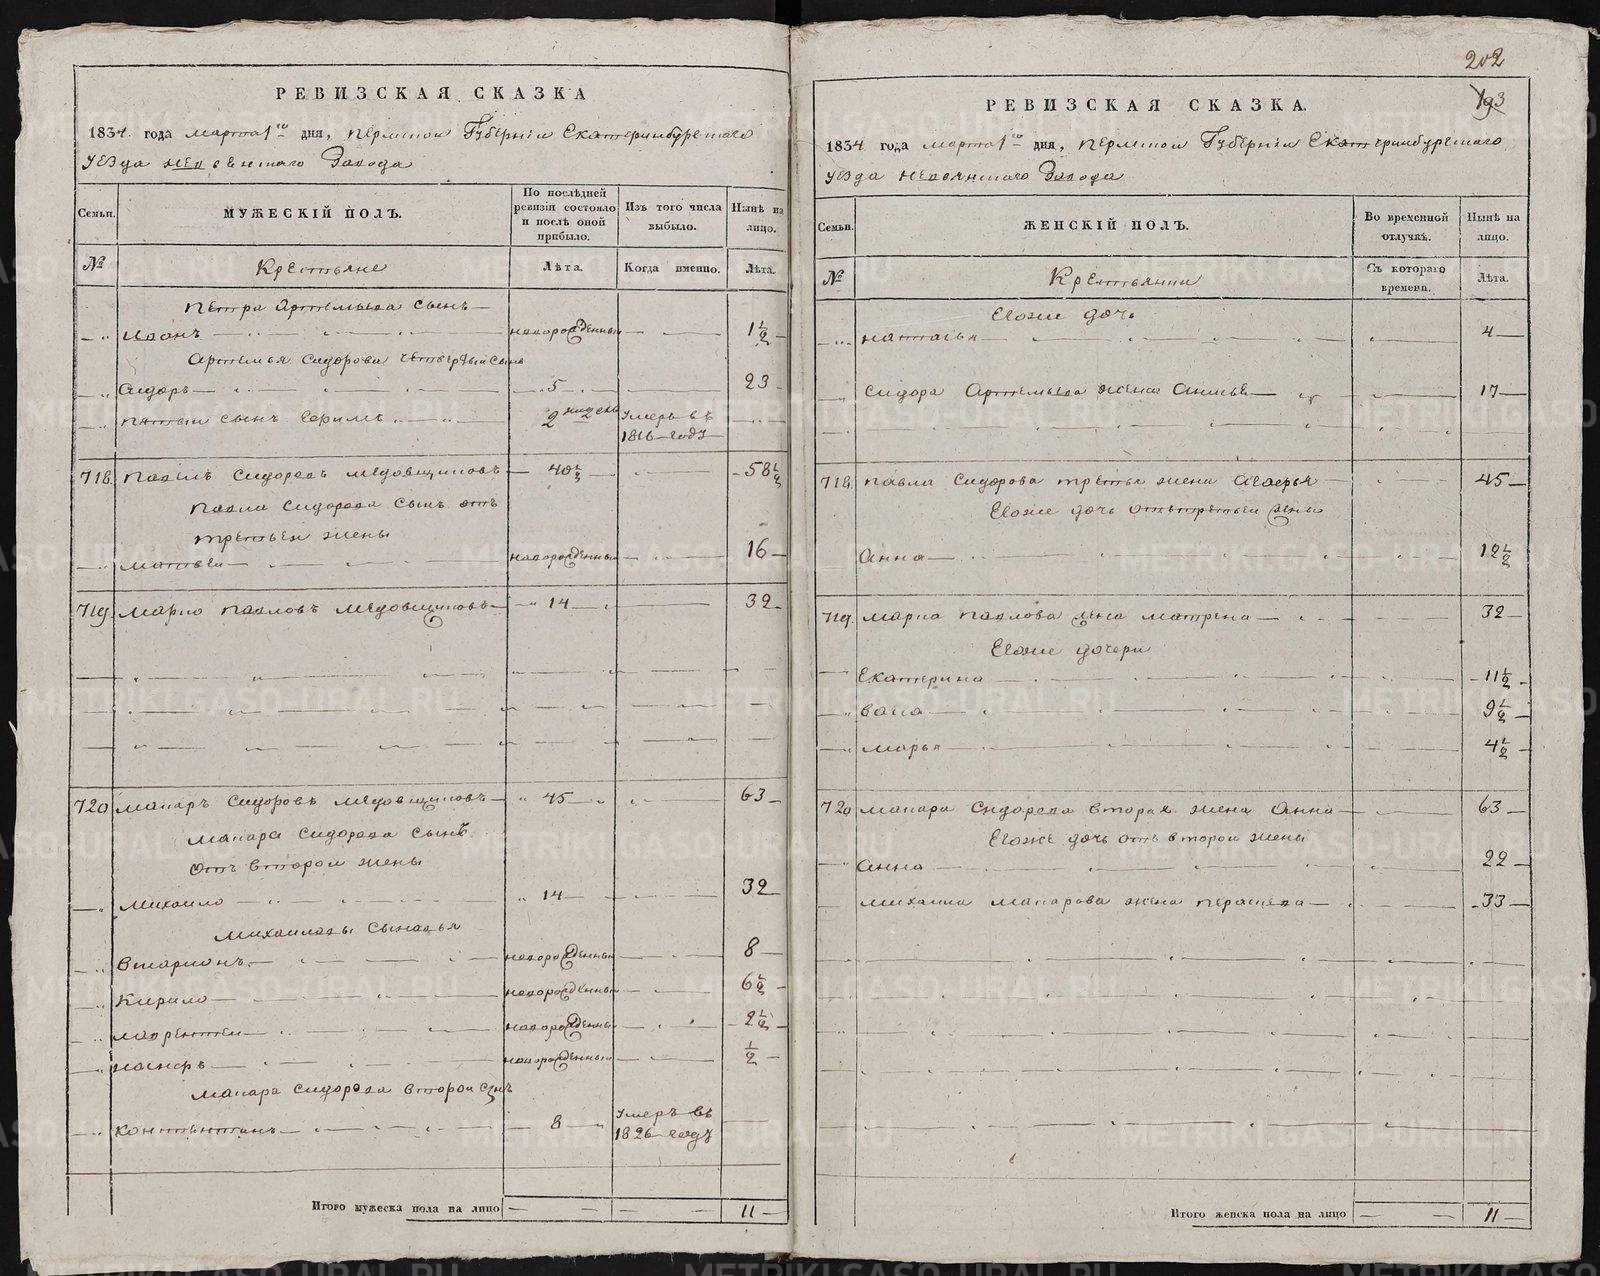 РЕВИЗСКАЯ СКАЗКА
1834 года марта 1го дня, Пермской Губернiи Екатеринбургского
уезда Невьянского Завода
Семьи. МУЖЕСКIЙ ПОЛЪ. По послѣдней ревизiи состояло и послѣ оной прибыло. Изъ того числа выбыло. Нынѣ на лицо.
№ Крестьяне Лѣта. Когда именно. Лѣта.
Петра Артемьева сынъ
Иванъ новорожденный 1 1/2
Артемья Сидорова четвертый сынъ
Сидоръ 5 23
пятый сынъ 2 Умеръ въ 1816 году
718 Павелъ Сидоровъ Медовщиковъ 40 1/2 58 1/2
Павла Сидорова сынъ отъ
третьей жены
Матвей новорожденный 16
719. Марко Павловъ Медовщиковъ 14 32
720 Макаръ Сидоровъ Медовщиковъ 45 63
Макара Сидорова сынъ
отъ второй жены
Михайло 14 32
Михайловы сыновья
новорожденный 8
Кирило новорожденный 6 1/2
Лаврентей новорожденный 2 1/2
новорожденный 1/2
Макара Сидорова второй сынъ
Констянтинъ 8 Умеръ въ 1826 году
Итого мужеска пола на лицо 11
202
193
РЕВИЗСКАЯ СКАЗКА.
1834 года марта 1го дня, Пермской Губернiи Екатеринбургского
уезда Невьянского Завода
Семьи. ЖЕНСКIЙ ПОЛЪ. Во временной отлучкѣ. Нынѣ на лицо.
№ Крестьянки Съ котораго времени. Лѣта.
Евоже дочь
Наталья 4
Сидора Артемьева жена 17
718. Павла Сидорова третья жена 45
Евоже дочь от третьей жены
Анна 12 1/2
719. Марка Павлова жена Матрена 32
Евоже дочери
Екатерина 11 1/2
9 1/2
Марья 4 1/2
720 Макара Сидорова вторая жена Анна 63
Евоже дочь отъ второй жены
Анна 22
Михаила Макарова жена 33
Итого женска пола на лицо 11
METRIKI.GASO-URAL.RU